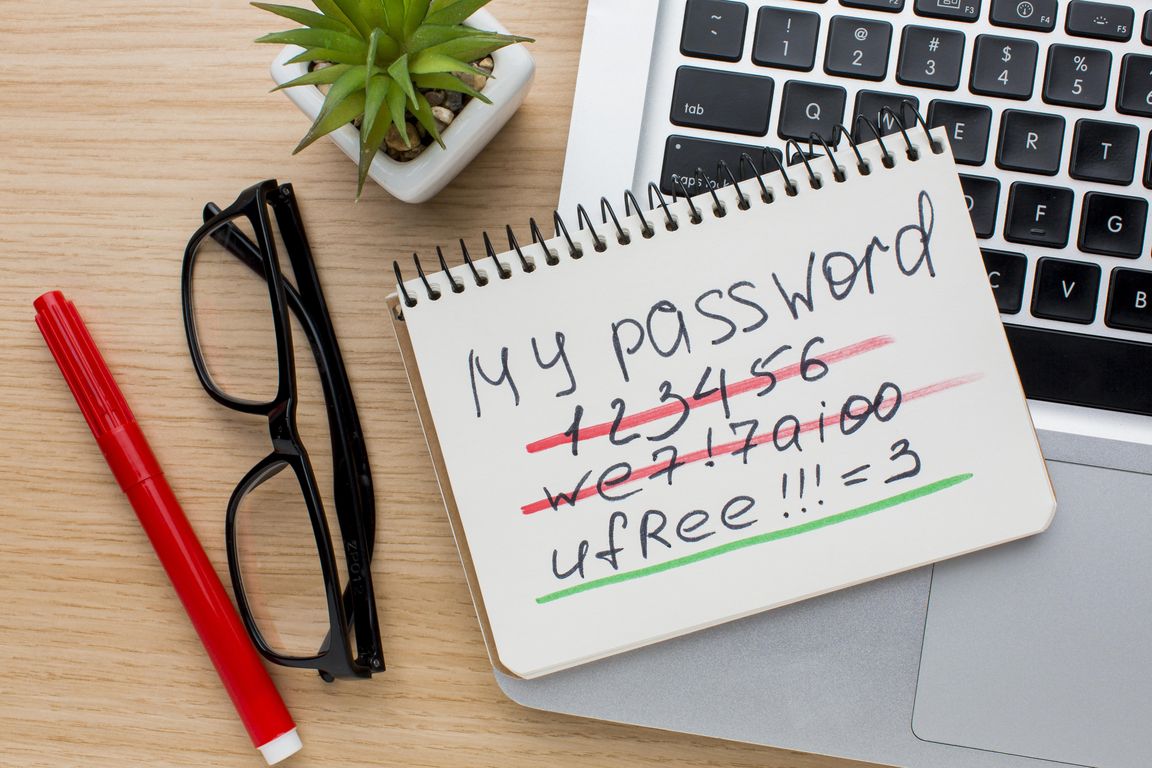 F3 F4 F5
~ ! @ # $ %
1 2 3 4 5
tab Q W E R T
caps lock F G
C V B
My password
123456
we7!7aioo
ufRee!!!=3